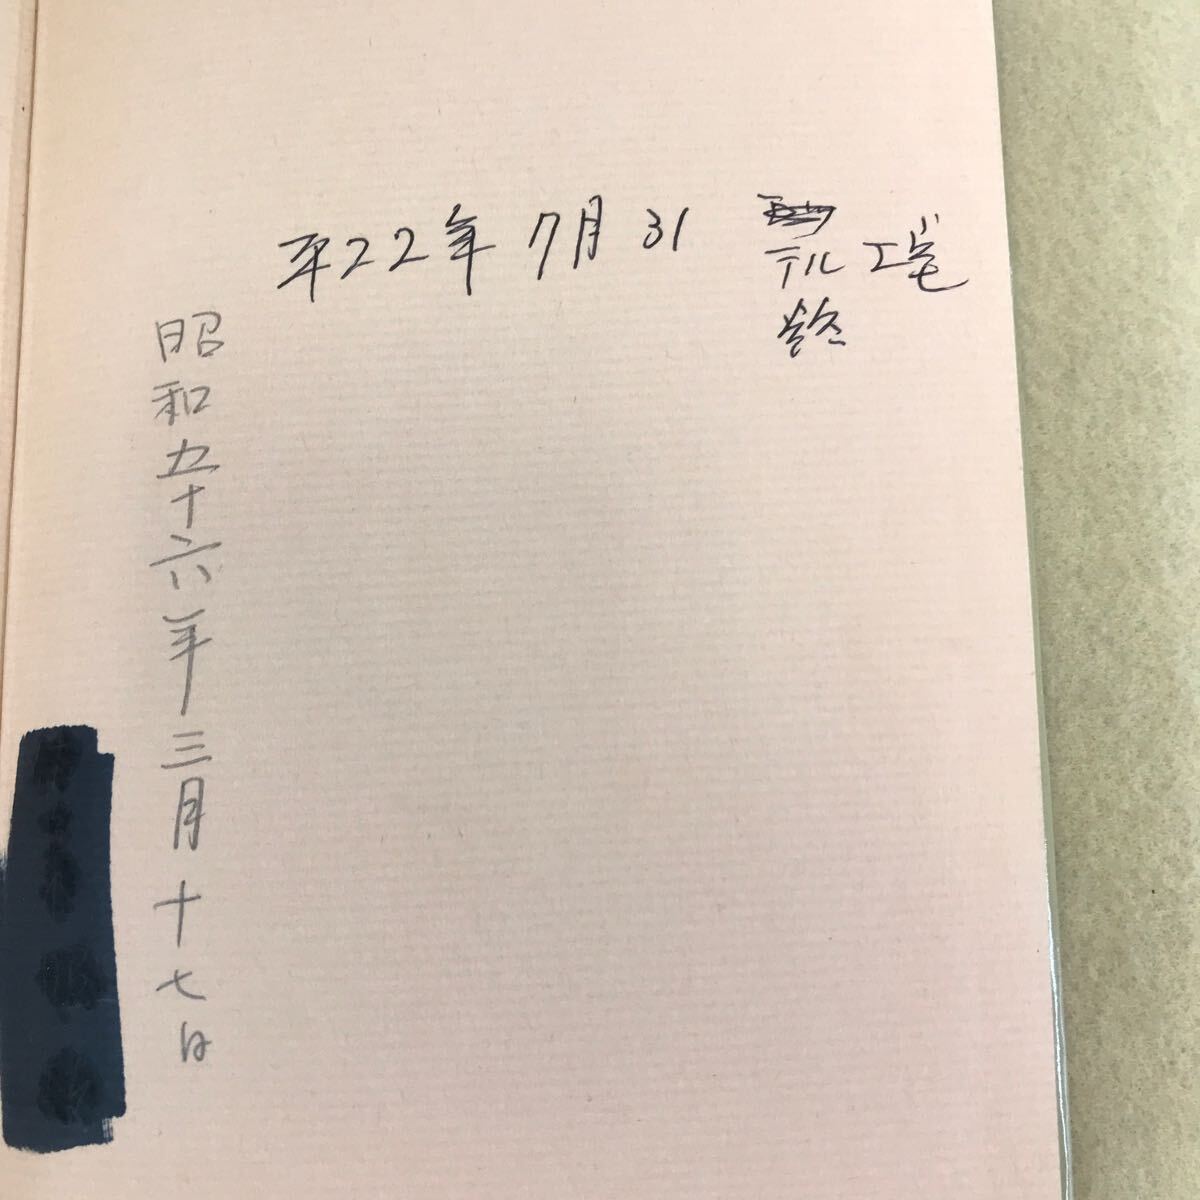 平22年 7月 31
テル
終
昭和五十六年三月十七日